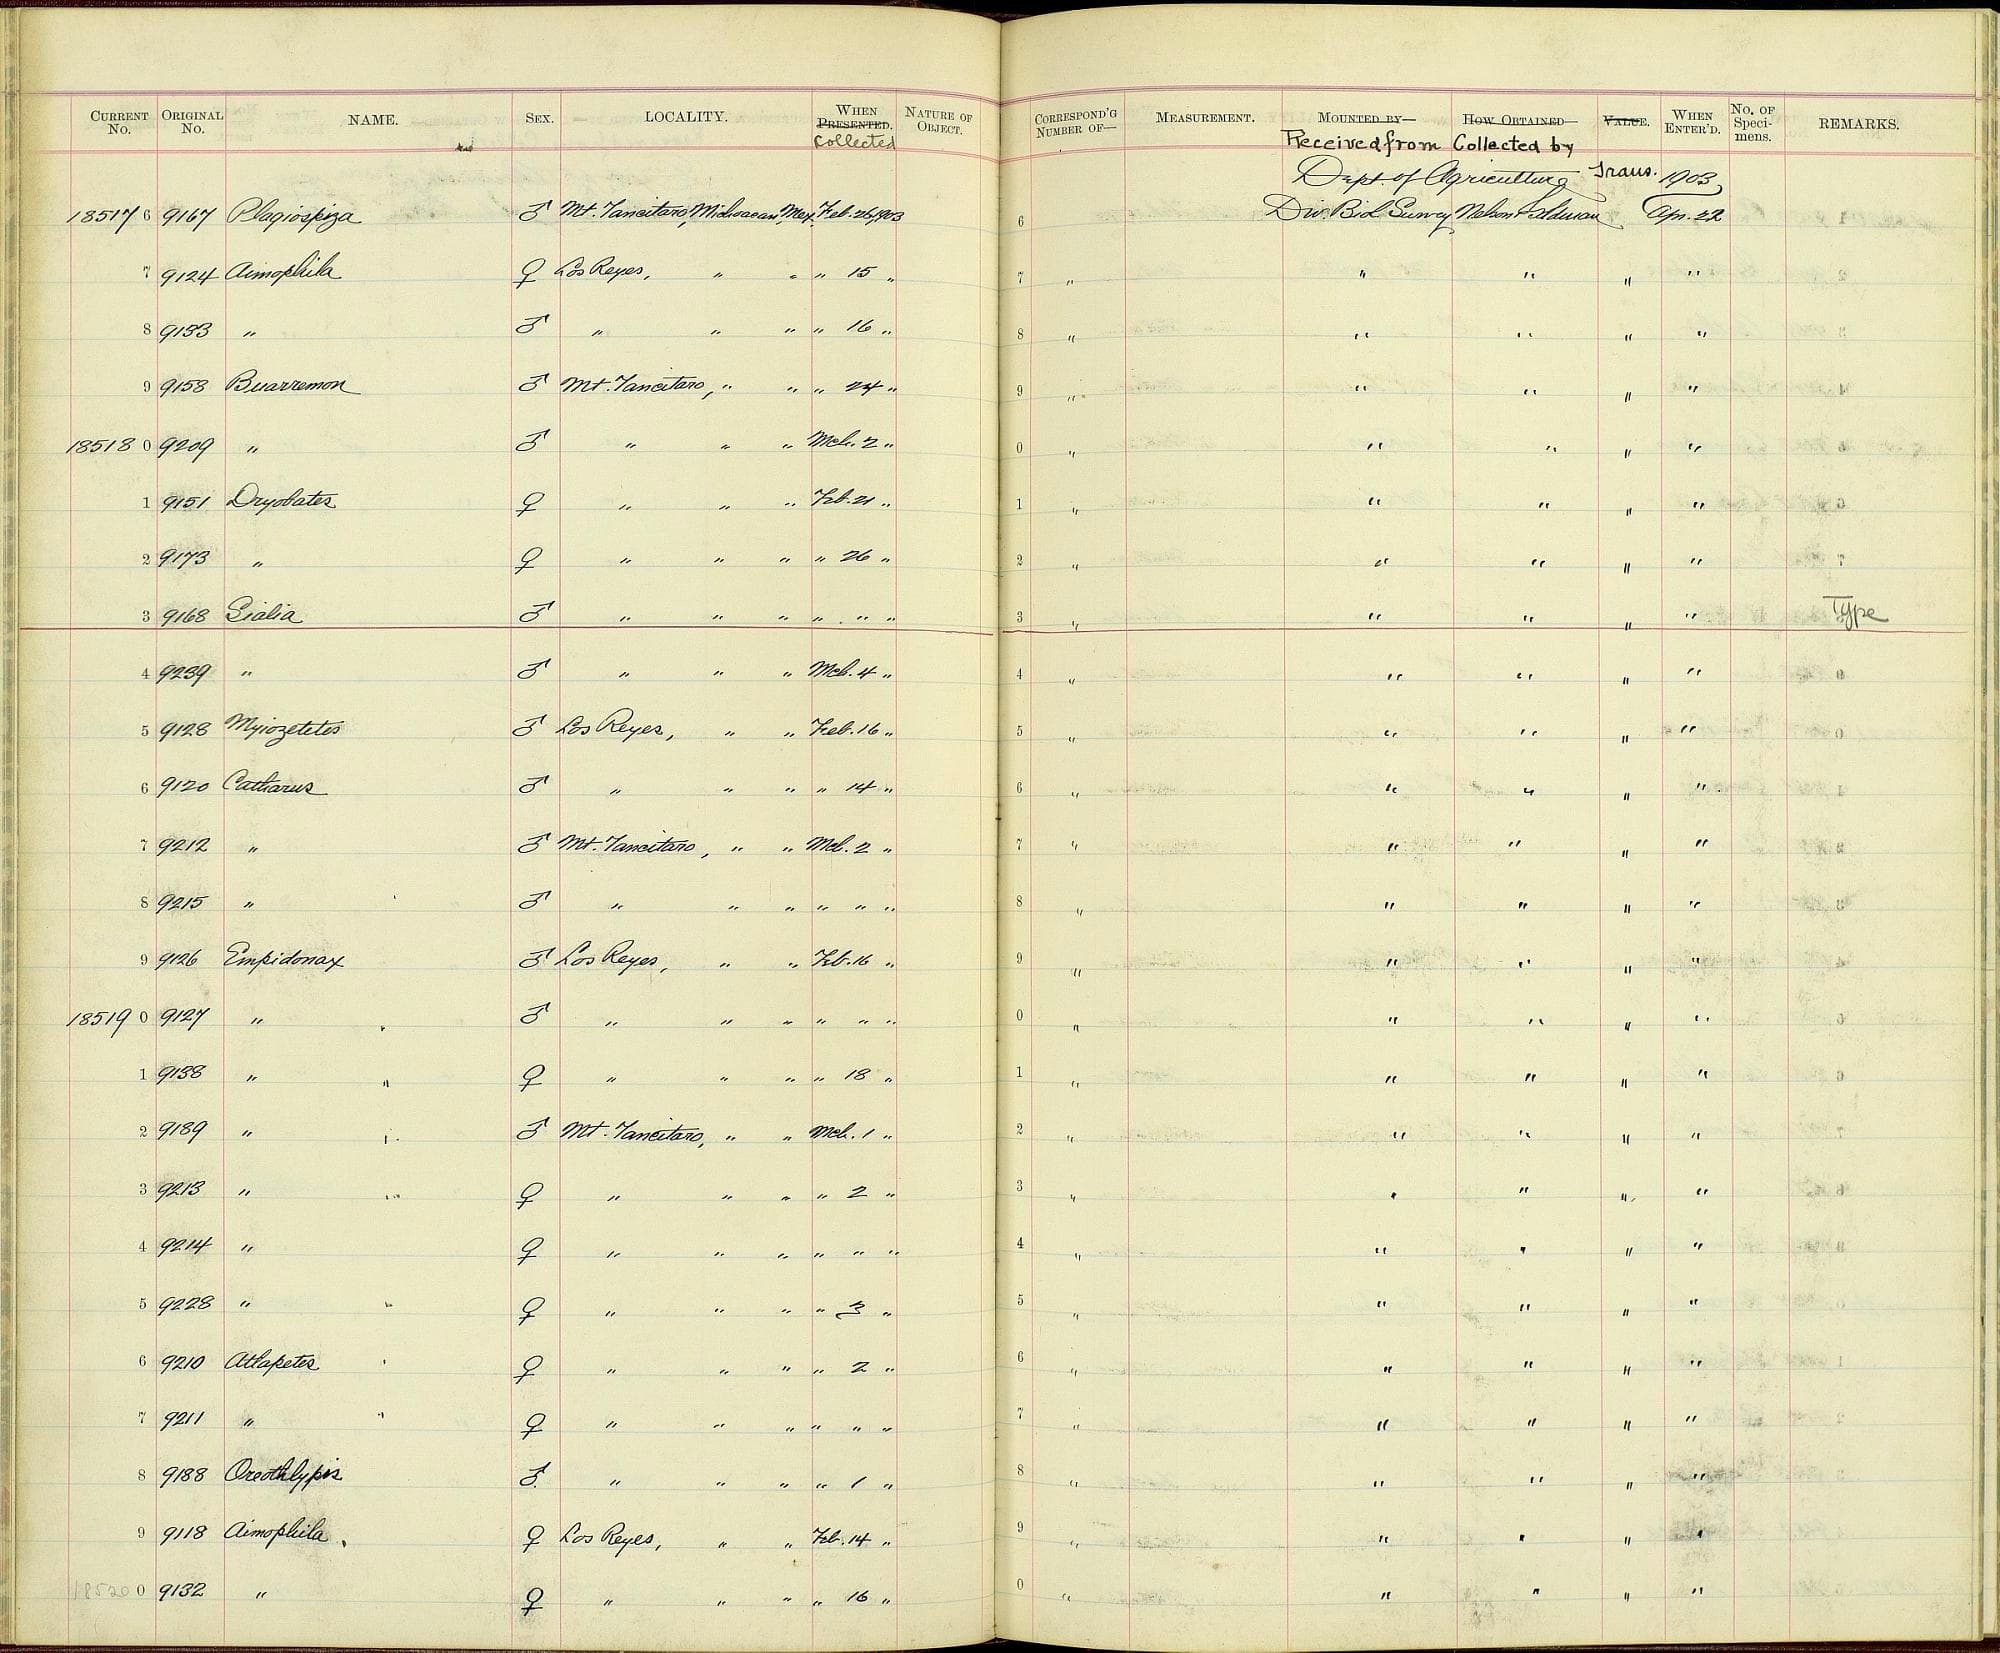 CURRENT No. ORIGINAL No. NAME. SEX. LOCALITY. WHEN PRESENTED. Collected NATURE OF OBJECT. CORRESPOND'G NUMBER OF— MEASUREMENT. MOUNTED BY— Received from HOW OBTAINED— Collected by VALUE. WHEN ENTER'D. No. OF Speci-mens. REMARKS.
Dept. of Agriculture Trans. 1903
18517 6 9167 Plagiospiza ♂ Mt. Tancitaro, Michoacan, Mex. Feb. 26, 1903 6 Div. Biol Survey Nelson & Goldman Apr. 22
7 9124 Aimophila ♀ Los Reyes, " " " 15 " 7 " " " " "
8 9133 " ♂ " " " " 16 " 8 " " " " "
9 9158 Buarremon ♂ Mt. Tancitaro, " " " 24 " 9 " " " " "
18518 0 9209 " ♂ " " " Mch. 2 " 0 " " " " "
1 9151 Dryobates ♀ " " " Feb. 21 " 1 " " " " "
2 9173 " ♀ " " " " 26 " 2 " " " " "
3 9168 Sialia ♂ " " " " " " 3 " " " " " Type
4 9239 " ♂ " " " Mch. 4 " 4 " " " " "
5 9128 Myiozetetes ♂ Los Reyes, " " Feb. 16 " 5 " " " " "
6 9120 Catharus ♂ " " " " 14 " 6 " " " " "
7 9212 " ♂ Mt. Tancitaro, " " Mch. 2 " 7 " " " " "
8 9215 " ♂ " " " " " " 8 " " " " "
9 9126 Empidonax ♂ Los Reyes, " " Feb. 16 " 9 " " " " "
18519 0 9127 " ♂ " " " " " " 0 " " " " "
1 9138 " " ♀ " " " " 18 " 1 " " " " "
2 9189 " ♂ Mt. Tancitaro, " " Mch. 1 " 2 " " " " "
3 9213 " ♀ " " " " 2 " 3 " " " " "
4 9214 " ♀ " " " " " " 4 " " " " "
5 9228 " ♀ " " " " 3 " 5 " " " " "
6 9210 Atlapetes ♀ " " " " 2 " 6 " " " " "
7 9211 " ♀ " " " " " " 7 " " " " "
8 9188 Oreothlypis ♂ " " " " 1 " 8 " " " " "
9 9118 Aimophila ♀ Los Reyes, " " Feb. 14 " 9 " " " " "
18520 0 9132 " ♀ " " " " 16 " 0 " " " " "